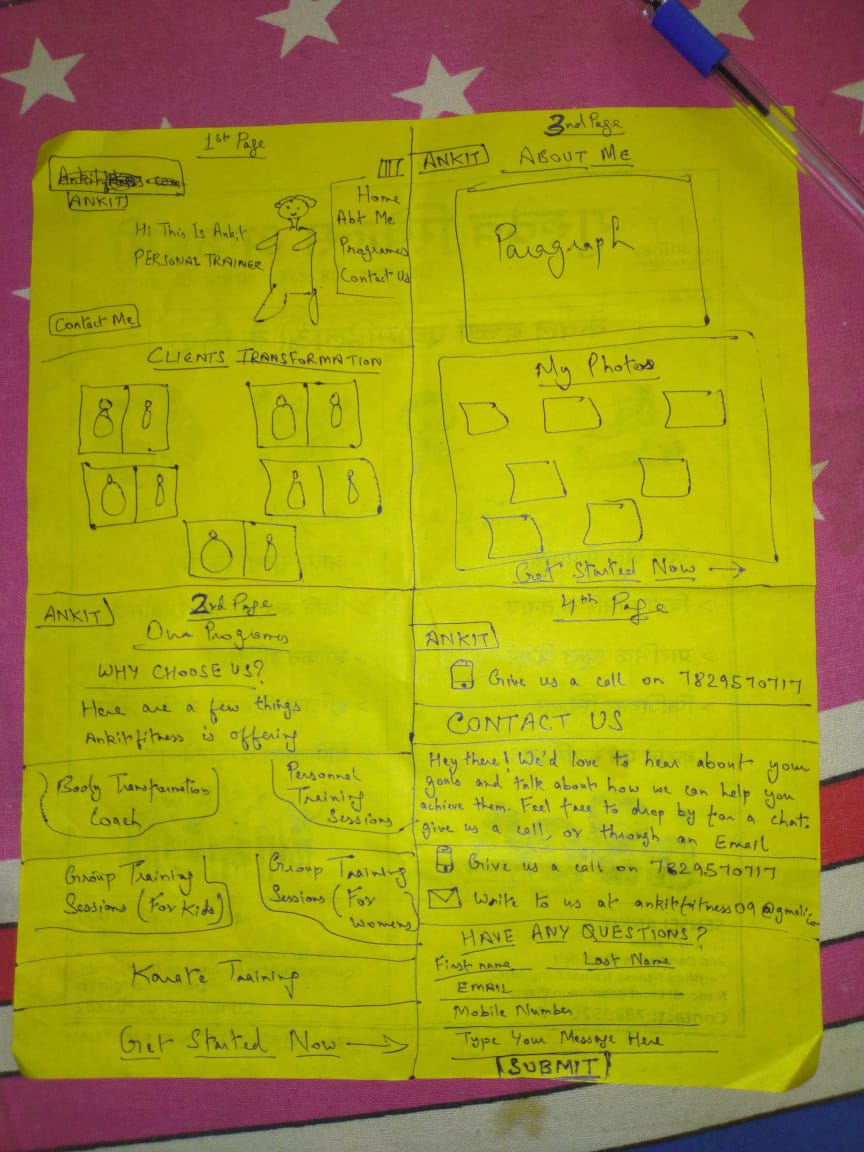 1st Page
Ankit
.com
ANKIT
Hi This Is Ankit
PERSONAL TRAINER
Home
Abt Me
Programes
Contact Us
Contact Me
CLIENTS TRANSFORMATION
3nd Page
ANKIT
ABOUT ME
Paragraph
My Photos
Get Started Now →
2rd Page
ANKIT
Our Programes
WHY CHOOSE US?
Here are a few things
Ankitfitness is offering
Body Transformation
Coach
Personnal
Training
Sessions
Group Training
Sessions (For Kids)
Group Training
Sessions (For
Womens)
Karate Training
Get Started Now →
4th Page
ANKIT
Give us a call on 7829570717
CONTACT US
Hey there! We'd love to hear about your
goals and talk about how we can help you
achieve them. Feel free to drop by for a chat.
give us a call, or through an Email
Give us a call on 7829570717
Write to us at ankitfitness09@gmail.com
HAVE ANY QUESTIONS?
First name Last Name
EMAIL
Mobile Number
Type Your Message Here
SUBMIT